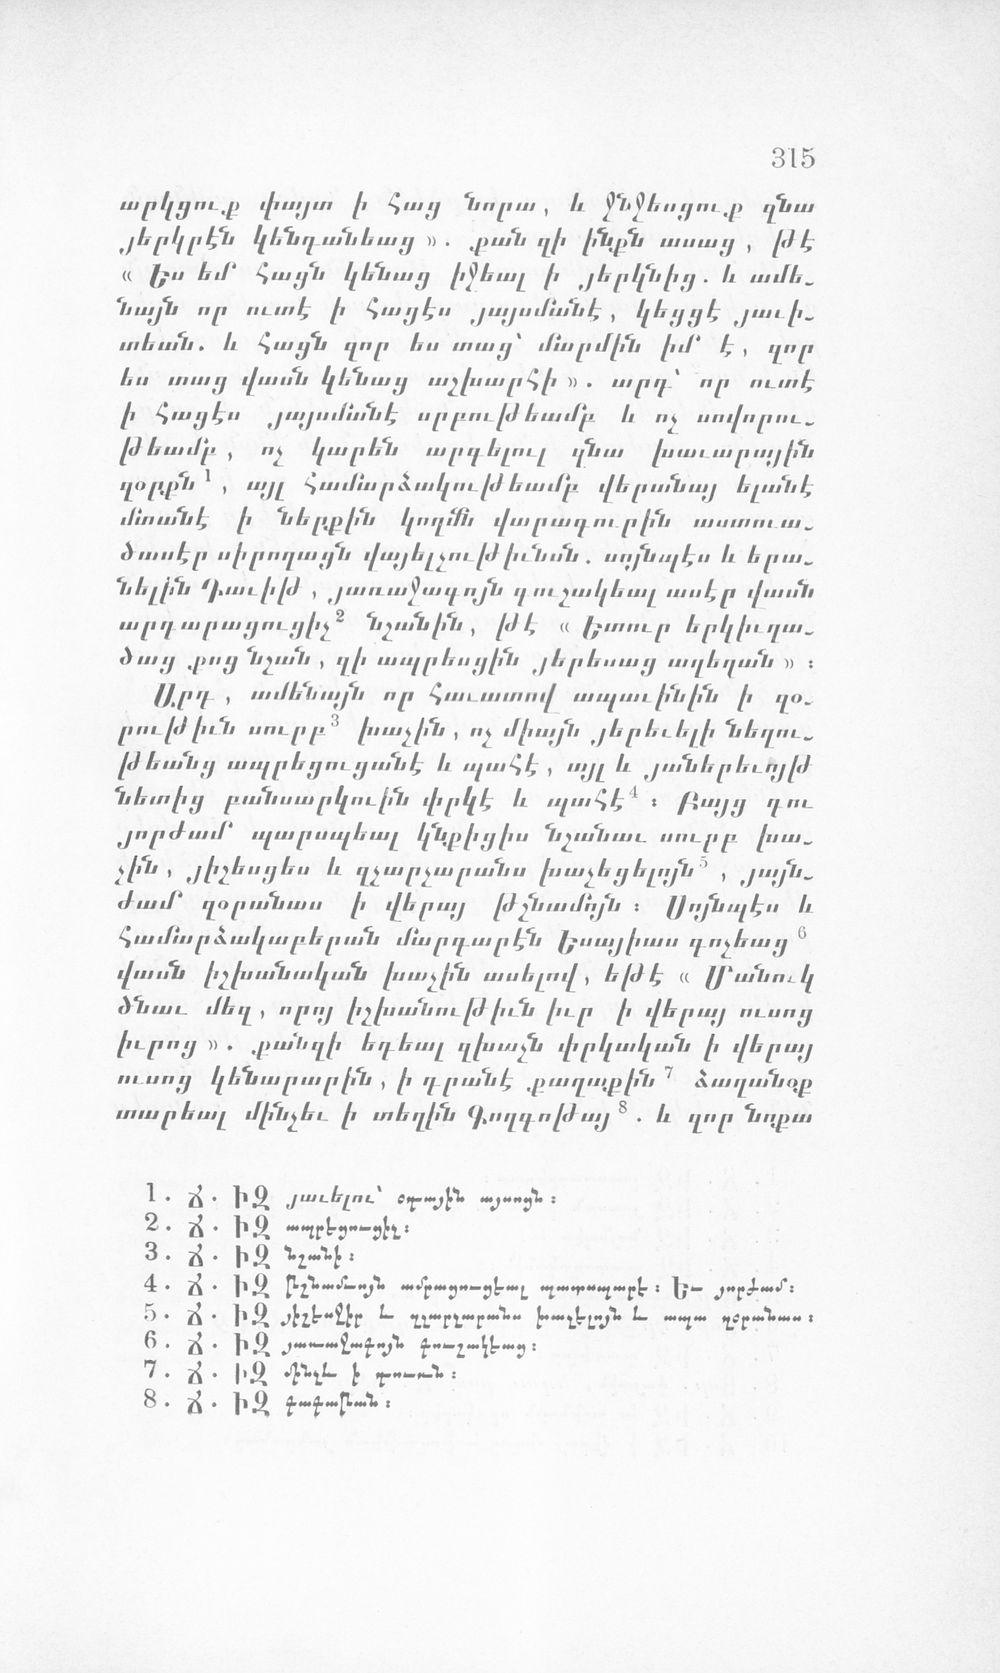 315
արկցուք փայտ ի հաց նորա, և ջնջեսցուք զնա
յերկրէն կենդանեաց ». քան զի ինքն ասաց, թէ
« Ես եմ հացն կենաց իջեալ ի յերկնից. և ամե֊
նայն որ ուտէ ի հացէս յայսմանէ, կեցցէ յաւի֊
տեան. և հացն զոր ես տաց՝ մարմին իմ է, զոր
ես տաց վասն կենաց աշխարհի ». արդ՝ որ ուտէ
ի հացէս յայսմանէ սրբութեամբ և ոչ սովորու֊
թեամբ, ոչ կարեն արգելուլ զնա խաւարային
զօրքն 1, այլ համարձակութեամբ վերանայ ելանէ
մտանէ ի ներքին կողմն վարագուրին աստուա֊
ծասէր սիրողացն վայելչութիւնսն. սոյնպէս և երա֊
նելին Դաւիթ, յառաջագոյն գուշակեալ ասէր վասն
արդարացուցիչ 2 նշանին, թէ « Ետուր երկիւղա֊
ծաց քոց նշան, զի ապրեսցին յերեսաց աղեղան » :
Արդ, ամենայն որ հաւատով ապաւինին ի զօ֊
րութիւն սուրբ 3 խաչին, ոչ միայն յերեւելի նեղու֊
թեանց ապրեցուցանէ և պահէ, այլ և յաներեւոյթ
նետից բանսարկուին փրկէ և պահէ 4 : Բայց դու
յորժամ պարսպեալ կնքիցիս նշանաւ սուրբ խա֊
չին, յիշեսցես և զչարչարանս խաչեցելոյն 5, յայն֊
ժամ զօրանաս ի վերայ թշնամոյն : Սոյնպէս և
համարձակաբերան մարգարէն Եսայիաս գոչեաց 6
վասն իշխանական խաչին ասելով, եթէ « Մանուկ
ծնաւ մեզ, որոյ իշխանութիւն իւր ի վերայ ուսոց
իւրոց ». քանզի եդեալ զխաչն փրկական ի վերայ
ուսոց կենարարին, ի դրանէ քաղաքին 7 ձաղանօք
տարեալ մինչեւ ի տեղին Գողգոթայ 8. և զոր նոքա
1. Ճ. ԻԶ յաւելու՝ օդային այսոցն :
2. Ճ. ԻԶ ապրեցուցիչ :
3. Ճ. ԻԶ նշանի :
4. Ճ. ԻԶ թշնամւոյն ամրացուցեալ պատսպարէ : Եւ յորժամ :
5. Ճ. ԻԶ յիշեսջիր և զչարչարանս խաչելոյն և ապա զօրանաս :
6. Ճ. ԻԶ յառաջագոյն գուշակեաց :
7. Ճ. ԻԶ մինչև ի դուռն :
8. Ճ. ԻԶ գագաթան :